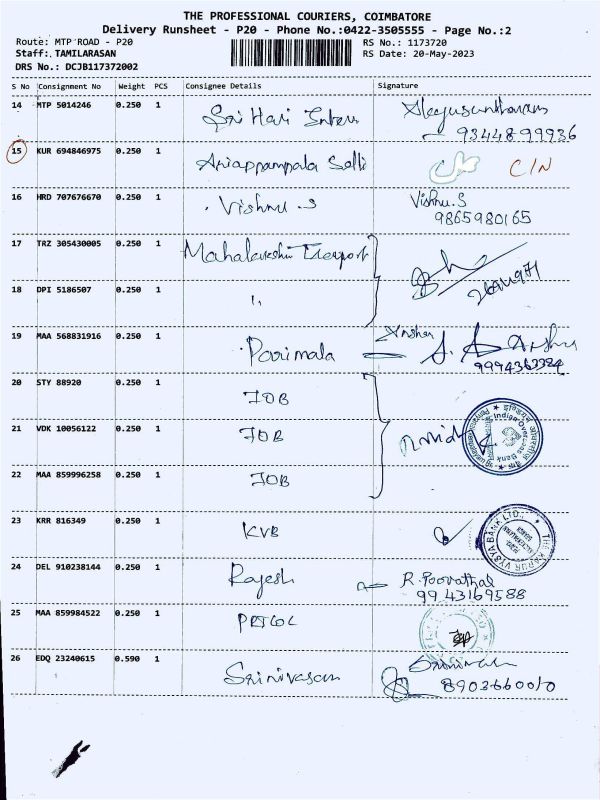 THE PROFESSIONAL COURIERS, COIMBATORE
Delivery Runsheet - P20 - Phone No.:0422-3505555 - Page No.:2
Route: MTP ROAD - P20 RS No.: 1173720
Staff: TAMILARASAN RS Date: 20-May-2023
DRS No.: DCJB117372002
S No Consignment No Weight PCS Consignee Details Signature
14 MTP 5014246 0.250 1 Sri Hari
9344899936
15 KUR 694846975 0.250 1 C/N
16 HRD 707676670 0.250 1 Vishnu S Vishnu.S
9865980165
17 TRZ 305430005 0.250 1 Mahalakshmi
18 DPI 5186507 0.250 1 "
19 MAA 568831916 0.250 1 Parimala
20 STY 88920 0.250 1 IOB
21 VDK 10056122 0.250 1 IOB Indian Overseas Bank
22 MAA 859996258 0.250 1 IOB
23 KRR 816349 0.250 1 KVB THE KARUR VYSYA BANK LTD.,
24 DEL 910238144 0.250 1 Rajesh R. Poovathal
9943169588
25 MAA 859984522 0.250 1
26 EDQ 23240615 0.590 1 Srinivasan
8903660010